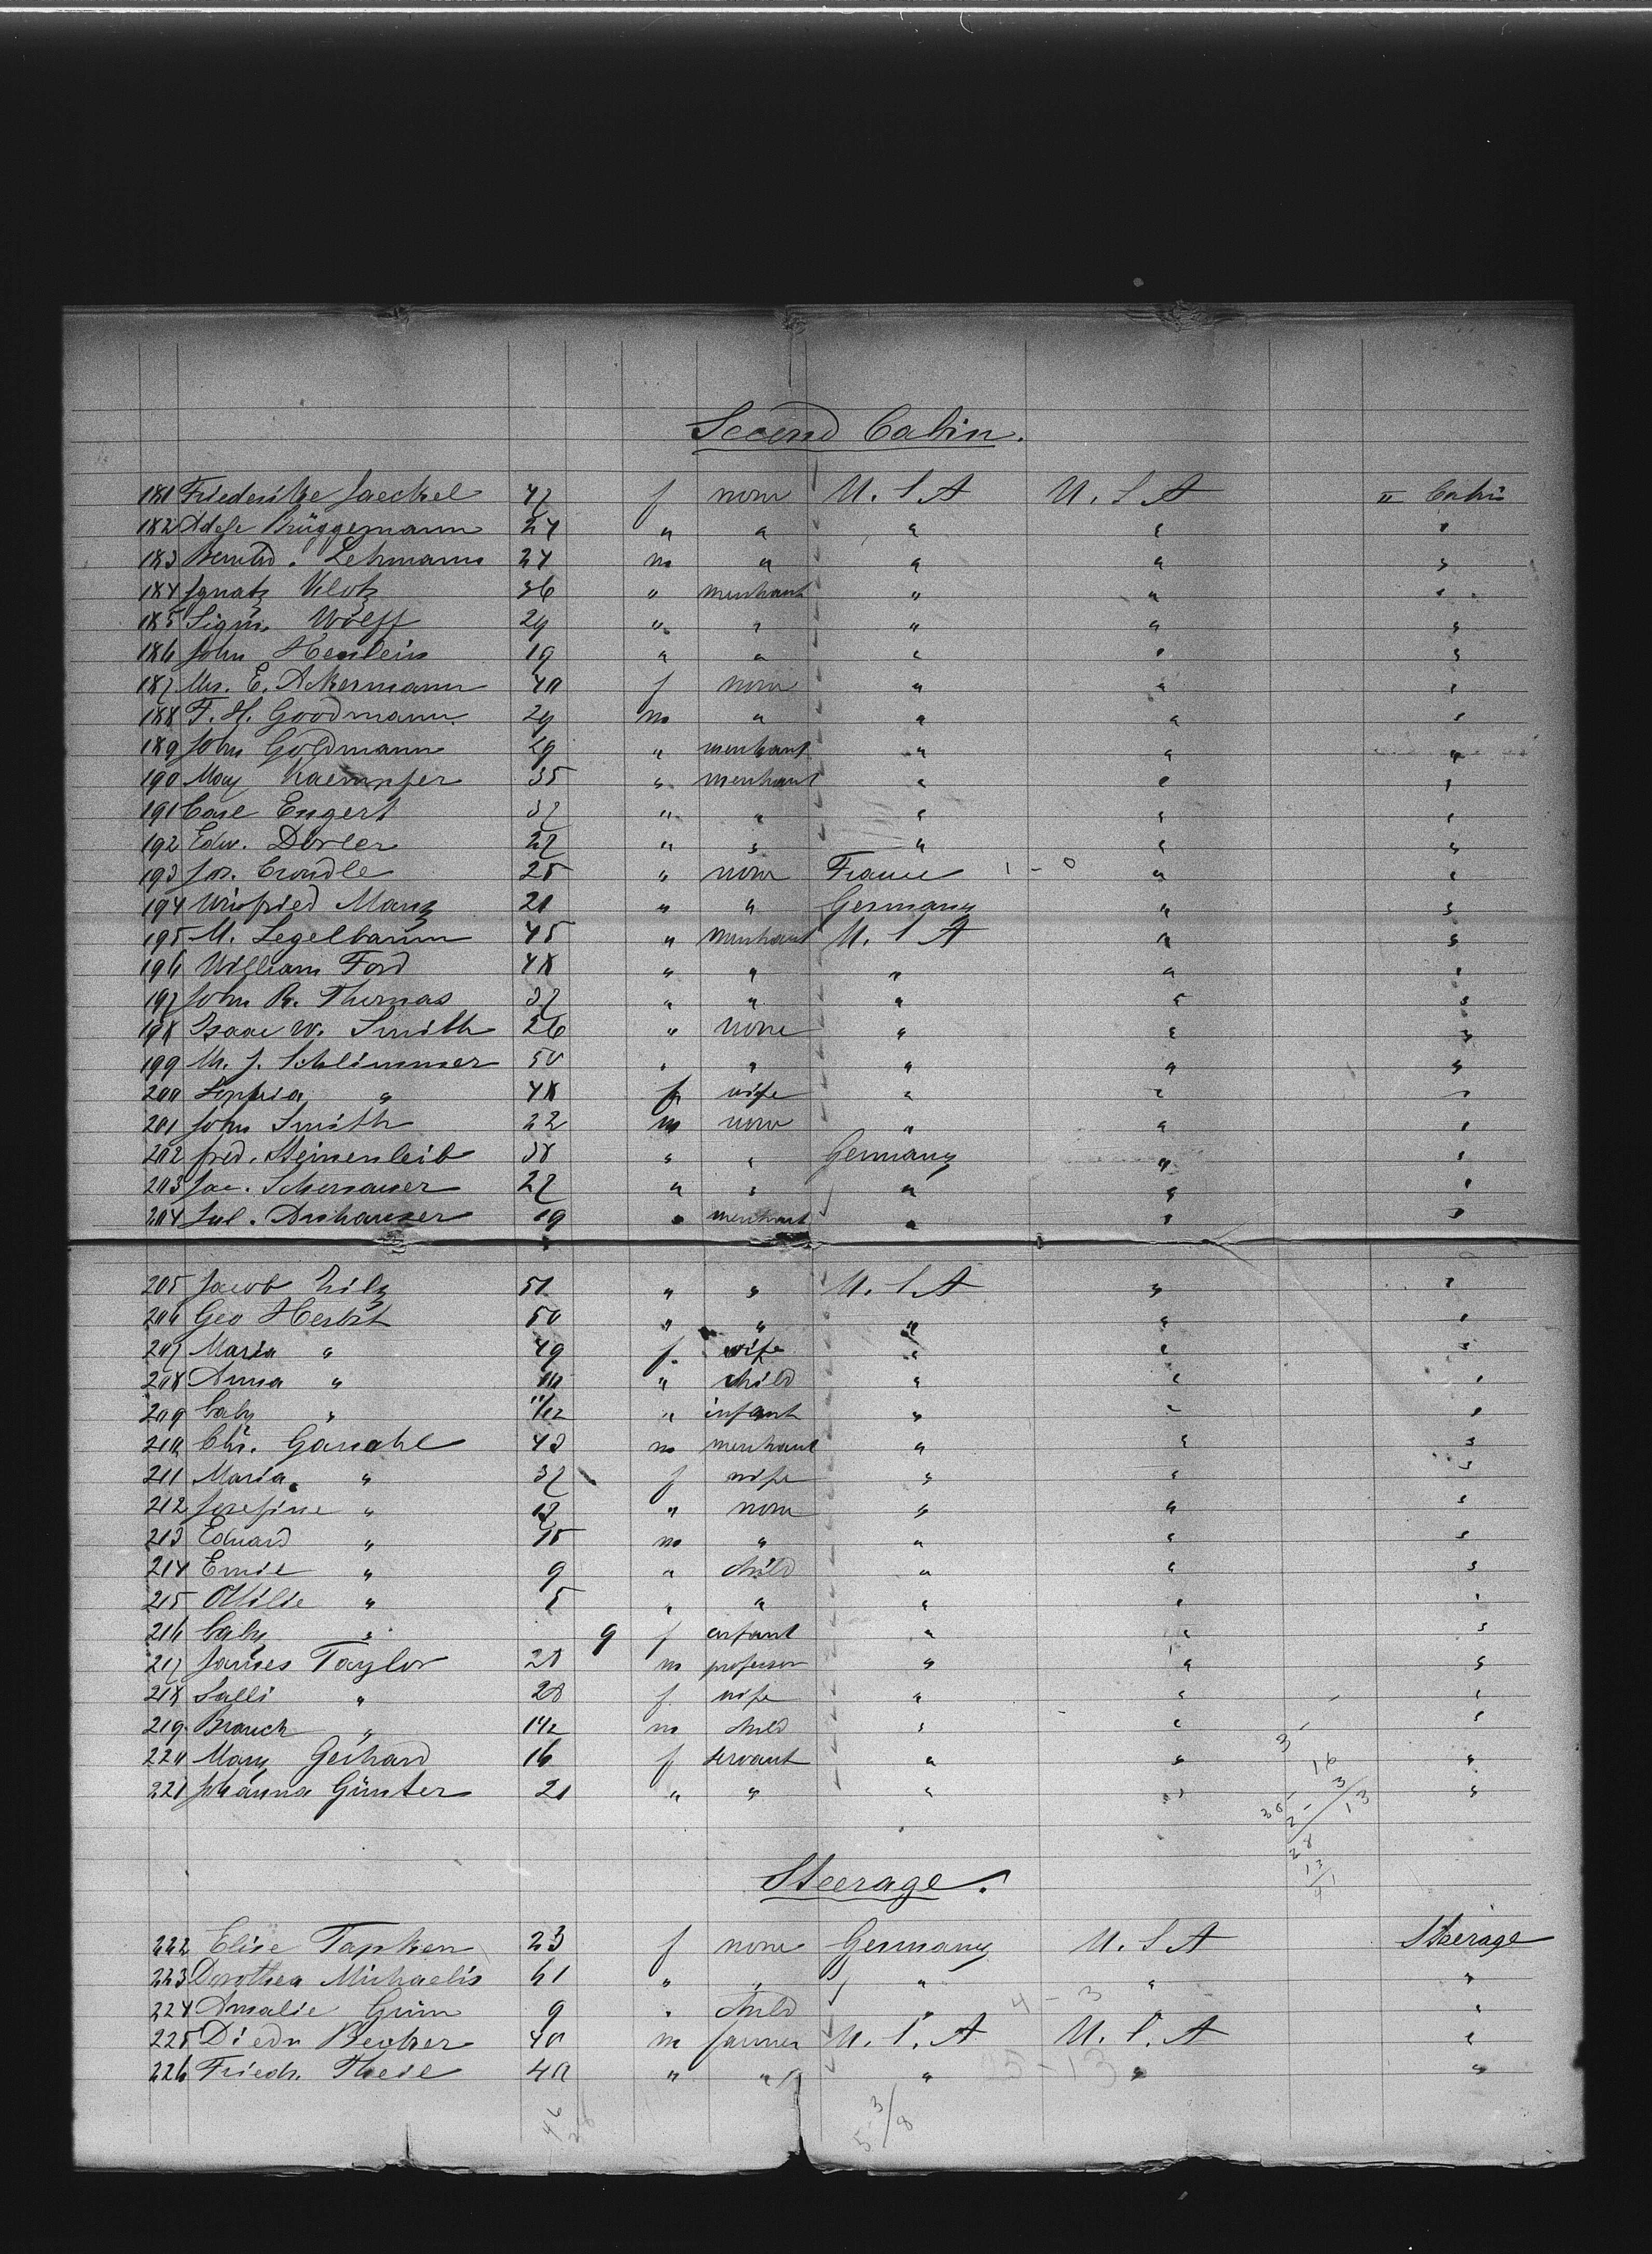 Second Cabin.
181 Friederike Jaeckel 47 f none U. S. A U. S. A II Cabin
182 Adele Brüggemann 24 " " " " "
183 Bernhd. Lehmann 24 m " " " "
184 Ignatz Klotz 36 " merchant " " "
185 Sigm. Wolff 29 " " " " "
186 John Henlein 19 " " " " "
187 Mrs. E. Ackermann 40 f none " " "
188 F. H. Goodmann 29 m " " " "
189 John Goldmann 29 " merchant " " "
190 Max Kaempfer 35 " merchant " " "
191 Carl Engert 37 " " " " "
192 Edw. Dorler 27 " " " " "
193 Jos. Crondle 25 " none France 1 - 0 " "
194 Winfried Manz 21 " " Germany " "
195 M. Segelbaum 45 " merchant U. S. A " "
196 William Ford 48 " " " " "
197 John R. Thomas 37 " " " " "
198 Isaac W. Smith 26 " none " " "
199 M. J. Schlimmer 50 " " " " "
200 Sophia " 48 f wife " " "
201 John Smith 22 m none " " "
202 fred. Steinenleib 38 " " Germany " "
203 Jac. 27 " " " " "
204 Jul. 19 " merchant " " "
205 Jacob Zilz 51 " " U. S. A " "
206 Geo Herbst 50 " " " " "
207 Maria " 49 f. wife " " "
208 Anna " 10 " child " " "
209 baby " 11/12 " infant " " "
210 Chr. Ganahl 43 m merchant " " "
211 Maria " 37 f wife " " "
212 Josefine " " none " " "
213 Eduard " 15 m " " " "
214 Emil " 9 " child " " "
215 Ottilie " 5 " " " " "
216 baby " 9 f infant " " "
217 James Taylor 28 m professor " " "
218 Salli " 28 f wife " " "
219 Branch " 1 1/2 m child " " "
220 Mary Gerhard 16 f servant " " "
221 Johanna Günter 21 " " " " "
Steerage.
222 Elise Tapken 23 f none Germany U. S. A Steerage
223 Dorothea Michaelis 61 " " " " "
224 Amalie Grün 9 " child " 4 - 3 "
225 Diedr Becker 40 m farmer U. S. A U. S. A "
226 Friedr. Theil 40 " " " 25 - 13 " "